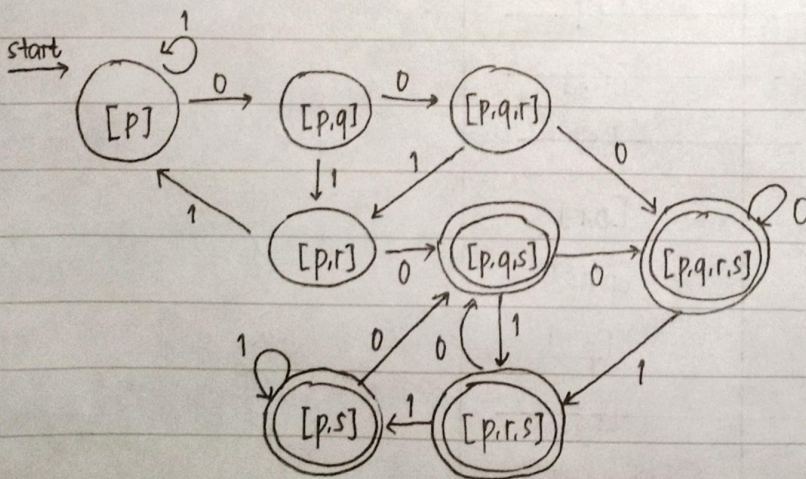 start
1
[p]
0
[p,q]
0
[p,q,r]
1
1
0
1
[p,r]
0
[p,q,s]
0
[p,q,r,s]
0
1
0
0
1
1
[p,s]
1
[p,r,s]